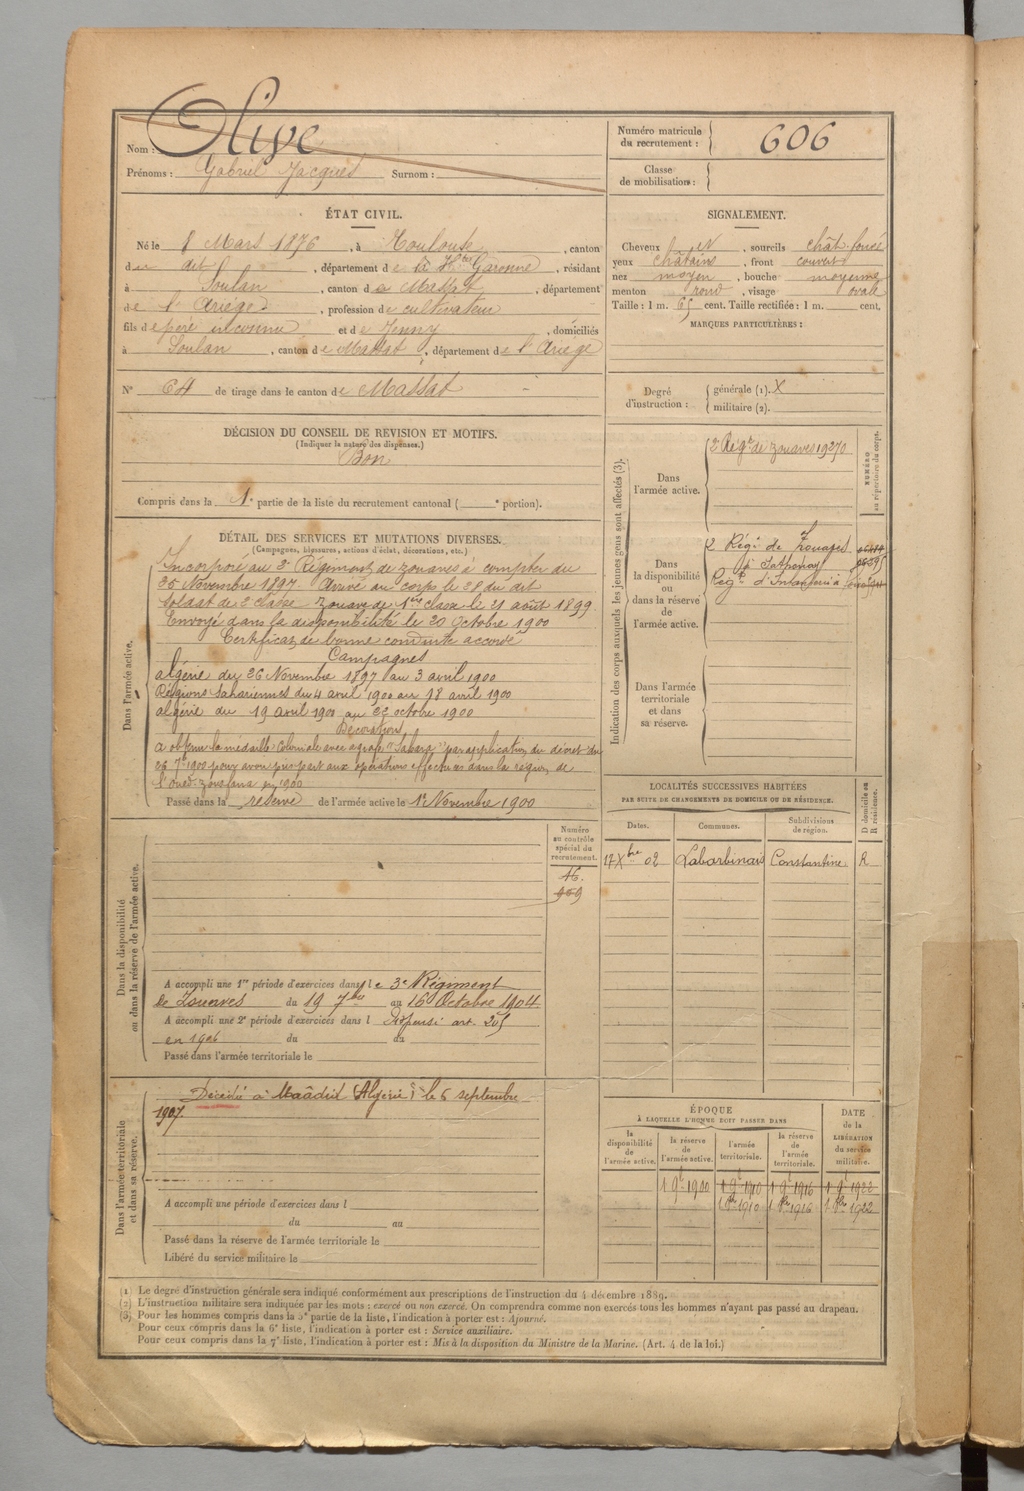 Nom : Olive
Prénoms : Gabriel Jacques Surnom :
Numéro matricule du recrutement : 606
Classe de mobilisation :
ÉTAT CIVIL.
Né le 8 Mars 1876, à Toulouse, canton
du dit, département de la Hte Garonne, résidant
à Soulan, canton de Massat, département
de l'Ariège, profession de cultivateur
fils de père inconnu et de Jenny, domiciliés
à Soulan, canton de Massat, département de l'Ariège
N° 64 de tirage dans le canton de Massat
SIGNALEMENT.
Cheveux N, sourcils chât. foncé
yeux châtains, front couvert
nez moyen, bouche moyenne
menton rond, visage ovale
Taille : 1 m. 65 cent. Taille rectifiée : 1 m. cent.
MARQUES PARTICULIÈRES :
Degré d'instruction : générale (1). X
militaire (2).
DÉCISION DU CONSEIL DE RÉVISION ET MOTIFS.
(Indiquer la nature des dispenses.)
Bon
Compris dans la 1e partie de la liste du recrutement cantonal ( e portion).
DÉTAIL DES SERVICES ET MUTATIONS DIVERSES.
(Campagnes, blessures, actions d'éclat, décorations, etc.)
Dans l'armée active.
Incorporé au 3e Régiment de zouaves à compter du
25 Novembre 1897 Arrivé au corps le 28 du dit
Soldat de 2e classe Zouave de 1ère classe le 21 août 1899
Envoyé dans la disponibilité le 20 octobre 1900
Certificat de bonne conduite accordé
Campagnes
Algérie du 26 Novembre 1897 au 3 avril 1900
Régions Sahariennes du 4 avril 1900 au 18 avril 1900
Algérie du 19 avril 1900 au 22 octobre 1900
Décoration
a obtenu la médaille Coloniale avec agrafe "Sahara" par application du décret du
26 7bre 1900 pour avoir pris part aux opérations effectuées dans la région de
l'oued Zousfana en 1900
Passé dans la réserve de l'armée active le 1er Novembre 1900
Indication des corps auxquels les jeunes gens sont affectés (3).
NUMÉRO au répertoire du corps.
Dans l'armée active.
Régt de zouaves
Dans la disponibilité ou dans la réserve de l'armée active.
2 Régt de Zouaves
à Sathonay
Régt d'Infanterie à
Dans l'armée territoriale et dans sa réserve.
LOCALITÉS SUCCESSIVES HABITÉES
PAR SUITE DE CHANGEMENTS DE DOMICILE OU DE RÉSIDENCE.
Dates. Communes. Subdivisions de région. D domicile ou R résidence.
17 Xbre 02 Labarbinais Constantine R
Dans la disponibilité ou dans la réserve de l'armée active.
Numéro au contrôle spécial du recrutement.
16.
959
A accompli une 1re période d'exercices dans le 3e Régiment
de Zouaves du 19 7bre au 16 Octobre 1904
A accompli une 2e période d'exercices dans l Dispensé art. 205
en 1906 du au
Passé dans l'armée territoriale le
Dans l'armée territoriale et dans sa réserve.
Décédé à Maâdid (Algérie) le 6 septembre
1907.
A accompli une période d'exercices dans l
du au
Passé dans la réserve de l'armée territoriale le
Libéré du service militaire le
ÉPOQUE
À LAQUELLE L'HOMME DOIT PASSER DANS
DATE de la LIBÉRATION du service militaire.
la disponibilité de l'armée active. la réserve de l'armée active. l'armée territoriale. la réserve de l'armée territoriale.
1 9e 1900 1 9e 1910 1 9e 1916 1 9e 1922
1 8re 1910 1 8re 1916 1 8re 1922
(1) Le degré d'instruction générale sera indiqué conformément aux prescriptions de l'instruction du 4 décembre 1889.
(2) L'instruction militaire sera indiquée par les mots : exercé ou non exercé. On comprendra comme non exercés tous les hommes n'ayant pas passé au drapeau.
(3) Pour les hommes compris dans la 5e partie de la liste, l'indication à porter est : Ajourné.
Pour ceux compris dans la 6e liste, l'indication à porter est : Service auxiliaire.
Pour ceux compris dans la 7e liste, l'indication à porter est : Mis à la disposition du Ministre de la Marine. (Art. 4 de la loi.)